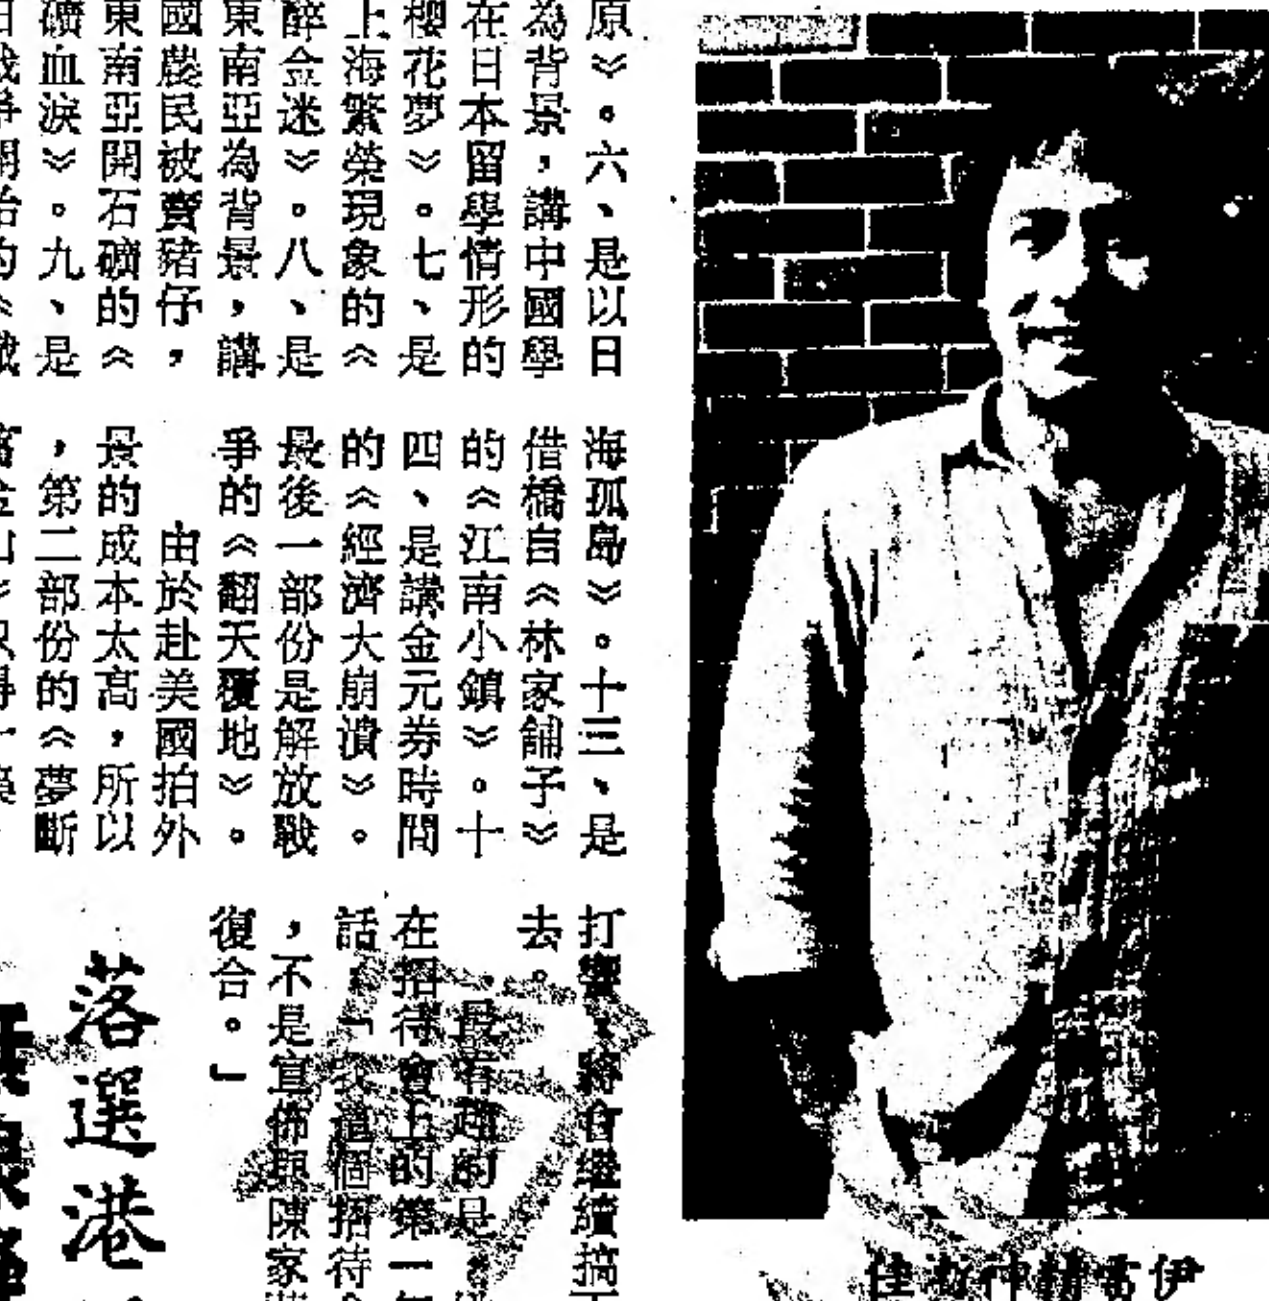 原》。六、是以日
為背景，講中國學
在日本留學情形的
櫻花夢》。七、是
上海繁榮現象的《
醉金迷》。八、是
東南亞為背景，講
國農民被賣豬仔，
東南亞開石礦的《
礦血淚》。九、是
海孤島》。十三、是
借橋自《林家舖子》
的《江南小鎮》。十
四、是講金元券時間
的《經濟大崩潰》。
最後一部份是解放戰
爭的《翻天覆地》。
由於赴美國拍外
景的成本太高，所以
，第二部份的《夢斷
打響，將會繼續搞
去。
最有趣的是
在招待會上的第一
話：「我這個招待
，不是宣佈與陳家
復合。」
落選港
伊雷